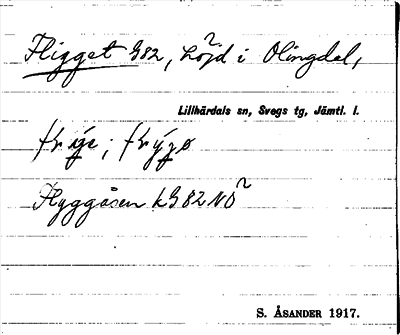 Fligget G82, Höjd i Olingdal,
Lillhärdals sn, Svegs tg, Jämtl. l.
Flyggåsen kG82NO
S. ÅSANDER 1917.